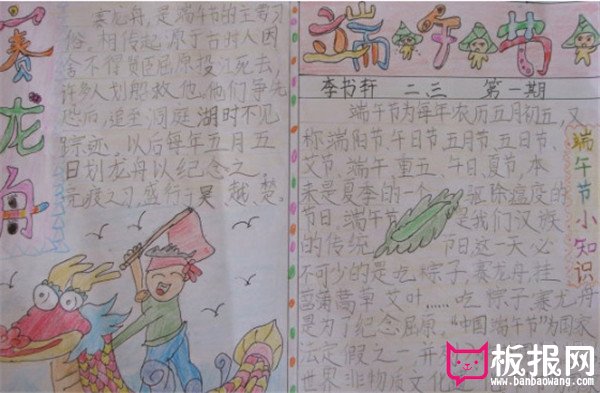 赛龙舟
赛龙舟,是端午节的主要习
俗。相传起源于古时人因
舍不得贤臣屈原投江死去,
许多人划船救他。他们争先
恐后,追至洞庭湖时不见
踪迹,以后每年五月五
日划龙舟以纪念之。
之习,盛行于吴、越、楚。
端午节
李书轩 二、三 第一期
端午节为每年农历五月初五,又
称端阳节、午日节、五月节、五日节、
艾节、端午、重五、午日、夏节,本
来是夏季的一个 驱除瘟疫的
节日,端午节 是我们汉族
的传统 节日这一天必
不可少的是吃粽子,赛龙舟,挂
菖蒲蒿草艾叶……吃粽子赛龙舟
是为了纪念屈原,“中国端午节”为国家
法定假之一并
世界非物质文化
端午节小知识
板报网
www.banbaowang.com